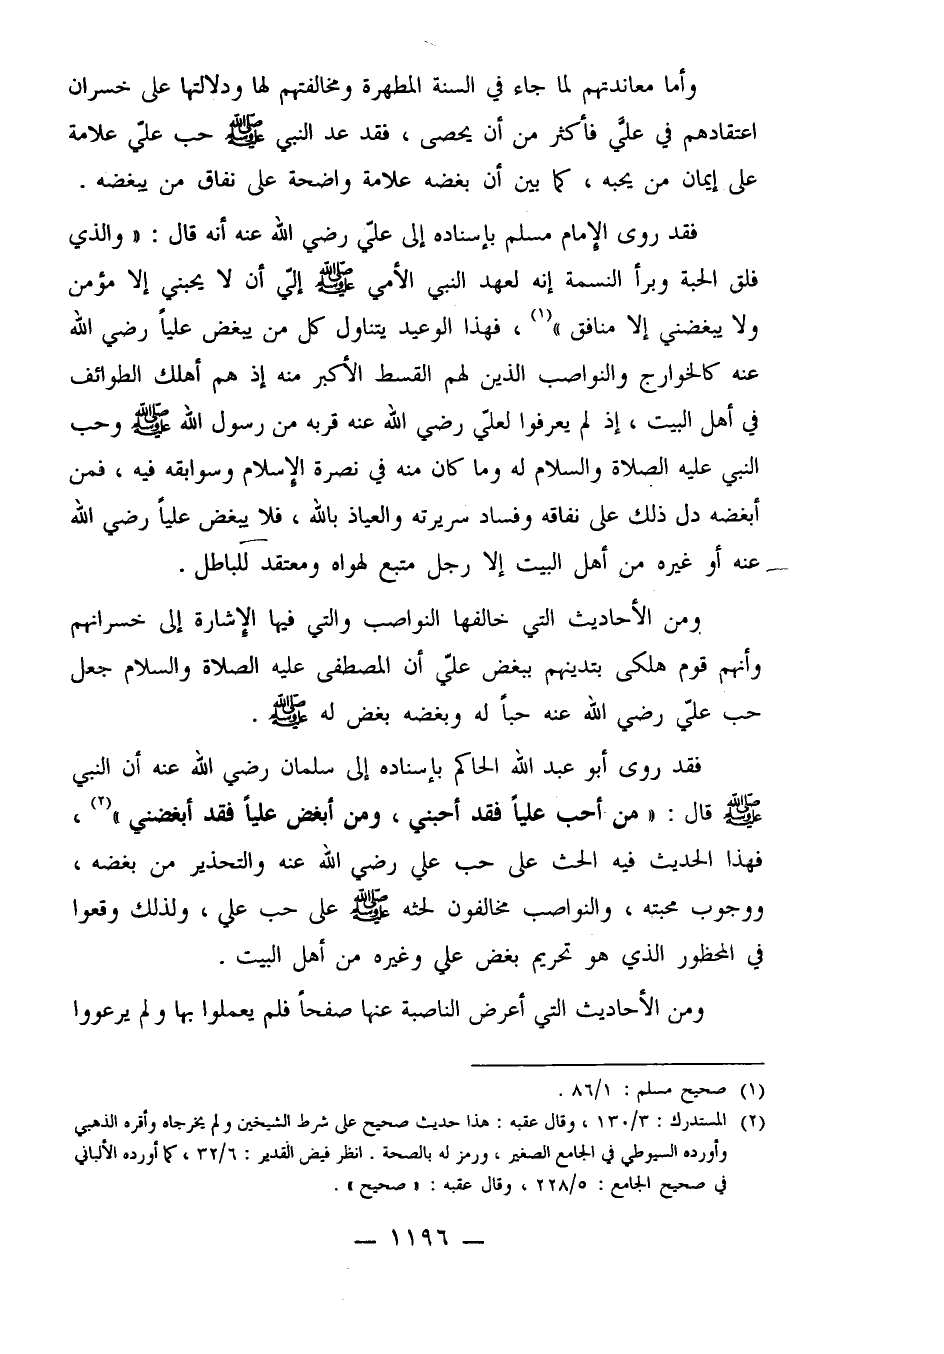 وأما معاندتهم لما جاء في السنة المطهرة ومخالفتهم لها ودلالتها على خسران
اعتقادهم في عليًّ فأكثر من أن يحصى ، فقد عد النبي ﷺ حب عليّ علامة
على إيمان من يحبه ، كما بين أن بغضه علامة واضحة على نفاق من يبغضه .
فقد روى الإمام مسلم بإسناده إلى عليّ رضي الله عنه أنه قال : « والذي
فلق الحبة وبرأ النسمة إنه لعهد النبي الأمي ﷺ إليّ أن لا يحبني إلا مؤمن
ولا يبغضني إلا منافق »(١) ، فهذا الوعيد يتناول كل من يبغض علياً رضي الله
عنه كالخوارج والنواصب الذين لهم القسط الأكبر منه إذ هم أهلك الطوائف
في أهل البيت ، إذ لم يعرفوا لعليّ رضي الله عنه قربه من رسول الله ﷺ وحب
النبي عليه الصلاة والسلام له وما كان منه في نصرة الإسلام وسوابقه فيه ، فمن
أبغضه دل ذلك على نفاقه وفساد سريرته والعياذ بالله ، فلا يبغض علياً رضي الله
عنه أو غيره من أهل البيت إلا رجل متبع لهواه ومعتقد للباطل .
ومن الأحاديث التي خالفها النواصب والتي فيها الإشارة إلى خسرانهم
وأنهم قوم هلكى بتدينهم ببغض عليّ أن المصطفى عليه الصلاة والسلام جعل
حب عليّ رضي الله عنه حباً له وبغضه بغض له ﷺ .
فقد روى أبو عبد الله الحاكم بإسناده إلى سلمان رضي الله عنه أن النبي
ﷺ قال : « من أحب علياً فقد أحبني ، ومن أبغض علياً فقد أبغضني »(٢) ،
فهذا الحديث فيه الحث على حب علي رضي الله عنه والتحذير من بغضه ،
ووجوب محبته ، والنواصب مخالفون لحثه ﷺ على حب علي ، ولذلك وقعوا
في المحظور الذي هو تحريم بغض علي وغيره من أهل البيت .
ومن الأحاديث التي أعرض الناصبة عنها صفحاً فلم يعملوا بها ولم يرعووا
(١) صحيح مسلم : ٨٦/١ .
(٢) المستدرك : ١٣٠/٣ ، وقال عقبه : هذا حديث صحيح على شرط الشيخين ولم يخرجاه وأقره الذهبي
وأورده السيوطي في الجامع الصغير ، ورمز له بالصحة . انظر فيض القدير : ٣٢/٦ ، كما أورده الألباني
في صحيح الجامع : ٢٢٨/٥ ، وقال عقبه : « صحيح » .
— ١١٩٦ —